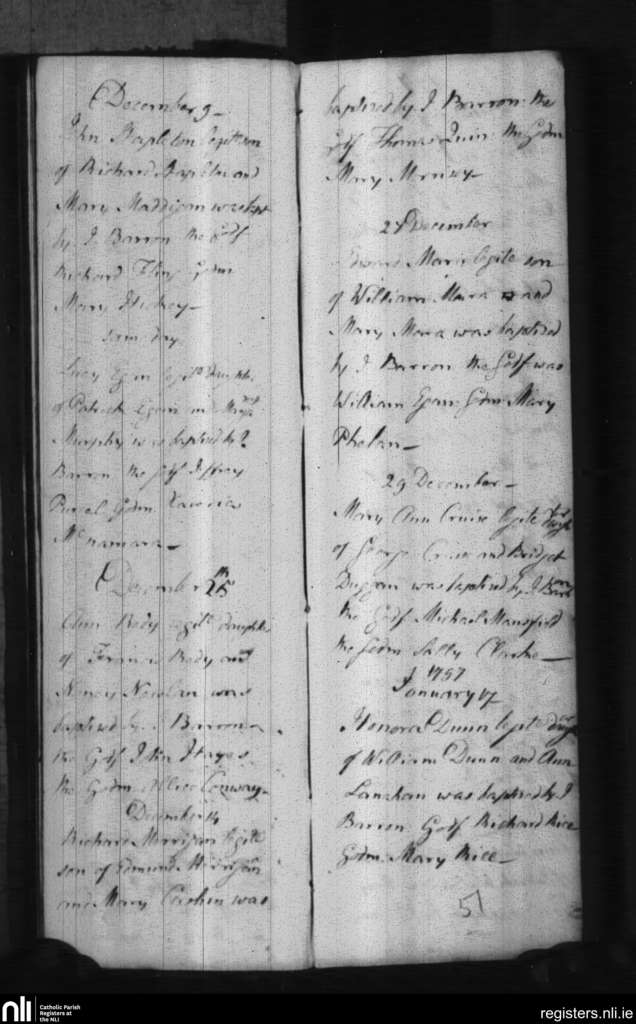 December 9
John Stapleton legitt son
of Richard Stapleton and
Mary Maddigan was bapt
by J Barron the Godf
Richard Godm
Mary Hickey
same day
Lucy Egan legitt Daughter
of Patrick Egan and
Murphy was baptised by J
Barron the Godf Jeffrey
Purcel Godm
McNamara
December 25th
Ann Rody legitt daughter
of Francis Rody and
Nancy Nowlan was
baptised by J Barron
the Godf John Hayes
the Godm Conway
December
Richard Morrison legite
son of Edmund Morrison
and Mary was
baptised by J Barron the
Godf Thomas Quin the Godm
Mary
December
Edward Mara legite son
of William Mara and
Mary Mara was baptised
by J Barron the Godf was
William Egan Godm Mary
Phelan
29 December
Mary Ann Cruise legite
of George Cruise and Bridget
Duggan was baptised by J Barron
the Godf Michael Mansfield
the Godm Sally Clarke
1797
January 17
Honora Dunn legitt
of William Dunn and Ann
Lanahan was baptised by J
Barron Godf Richard Rice
Godm Mary Rice
51
nli
Catholic Parish
Registers at
the NLI
registers.nli.ie